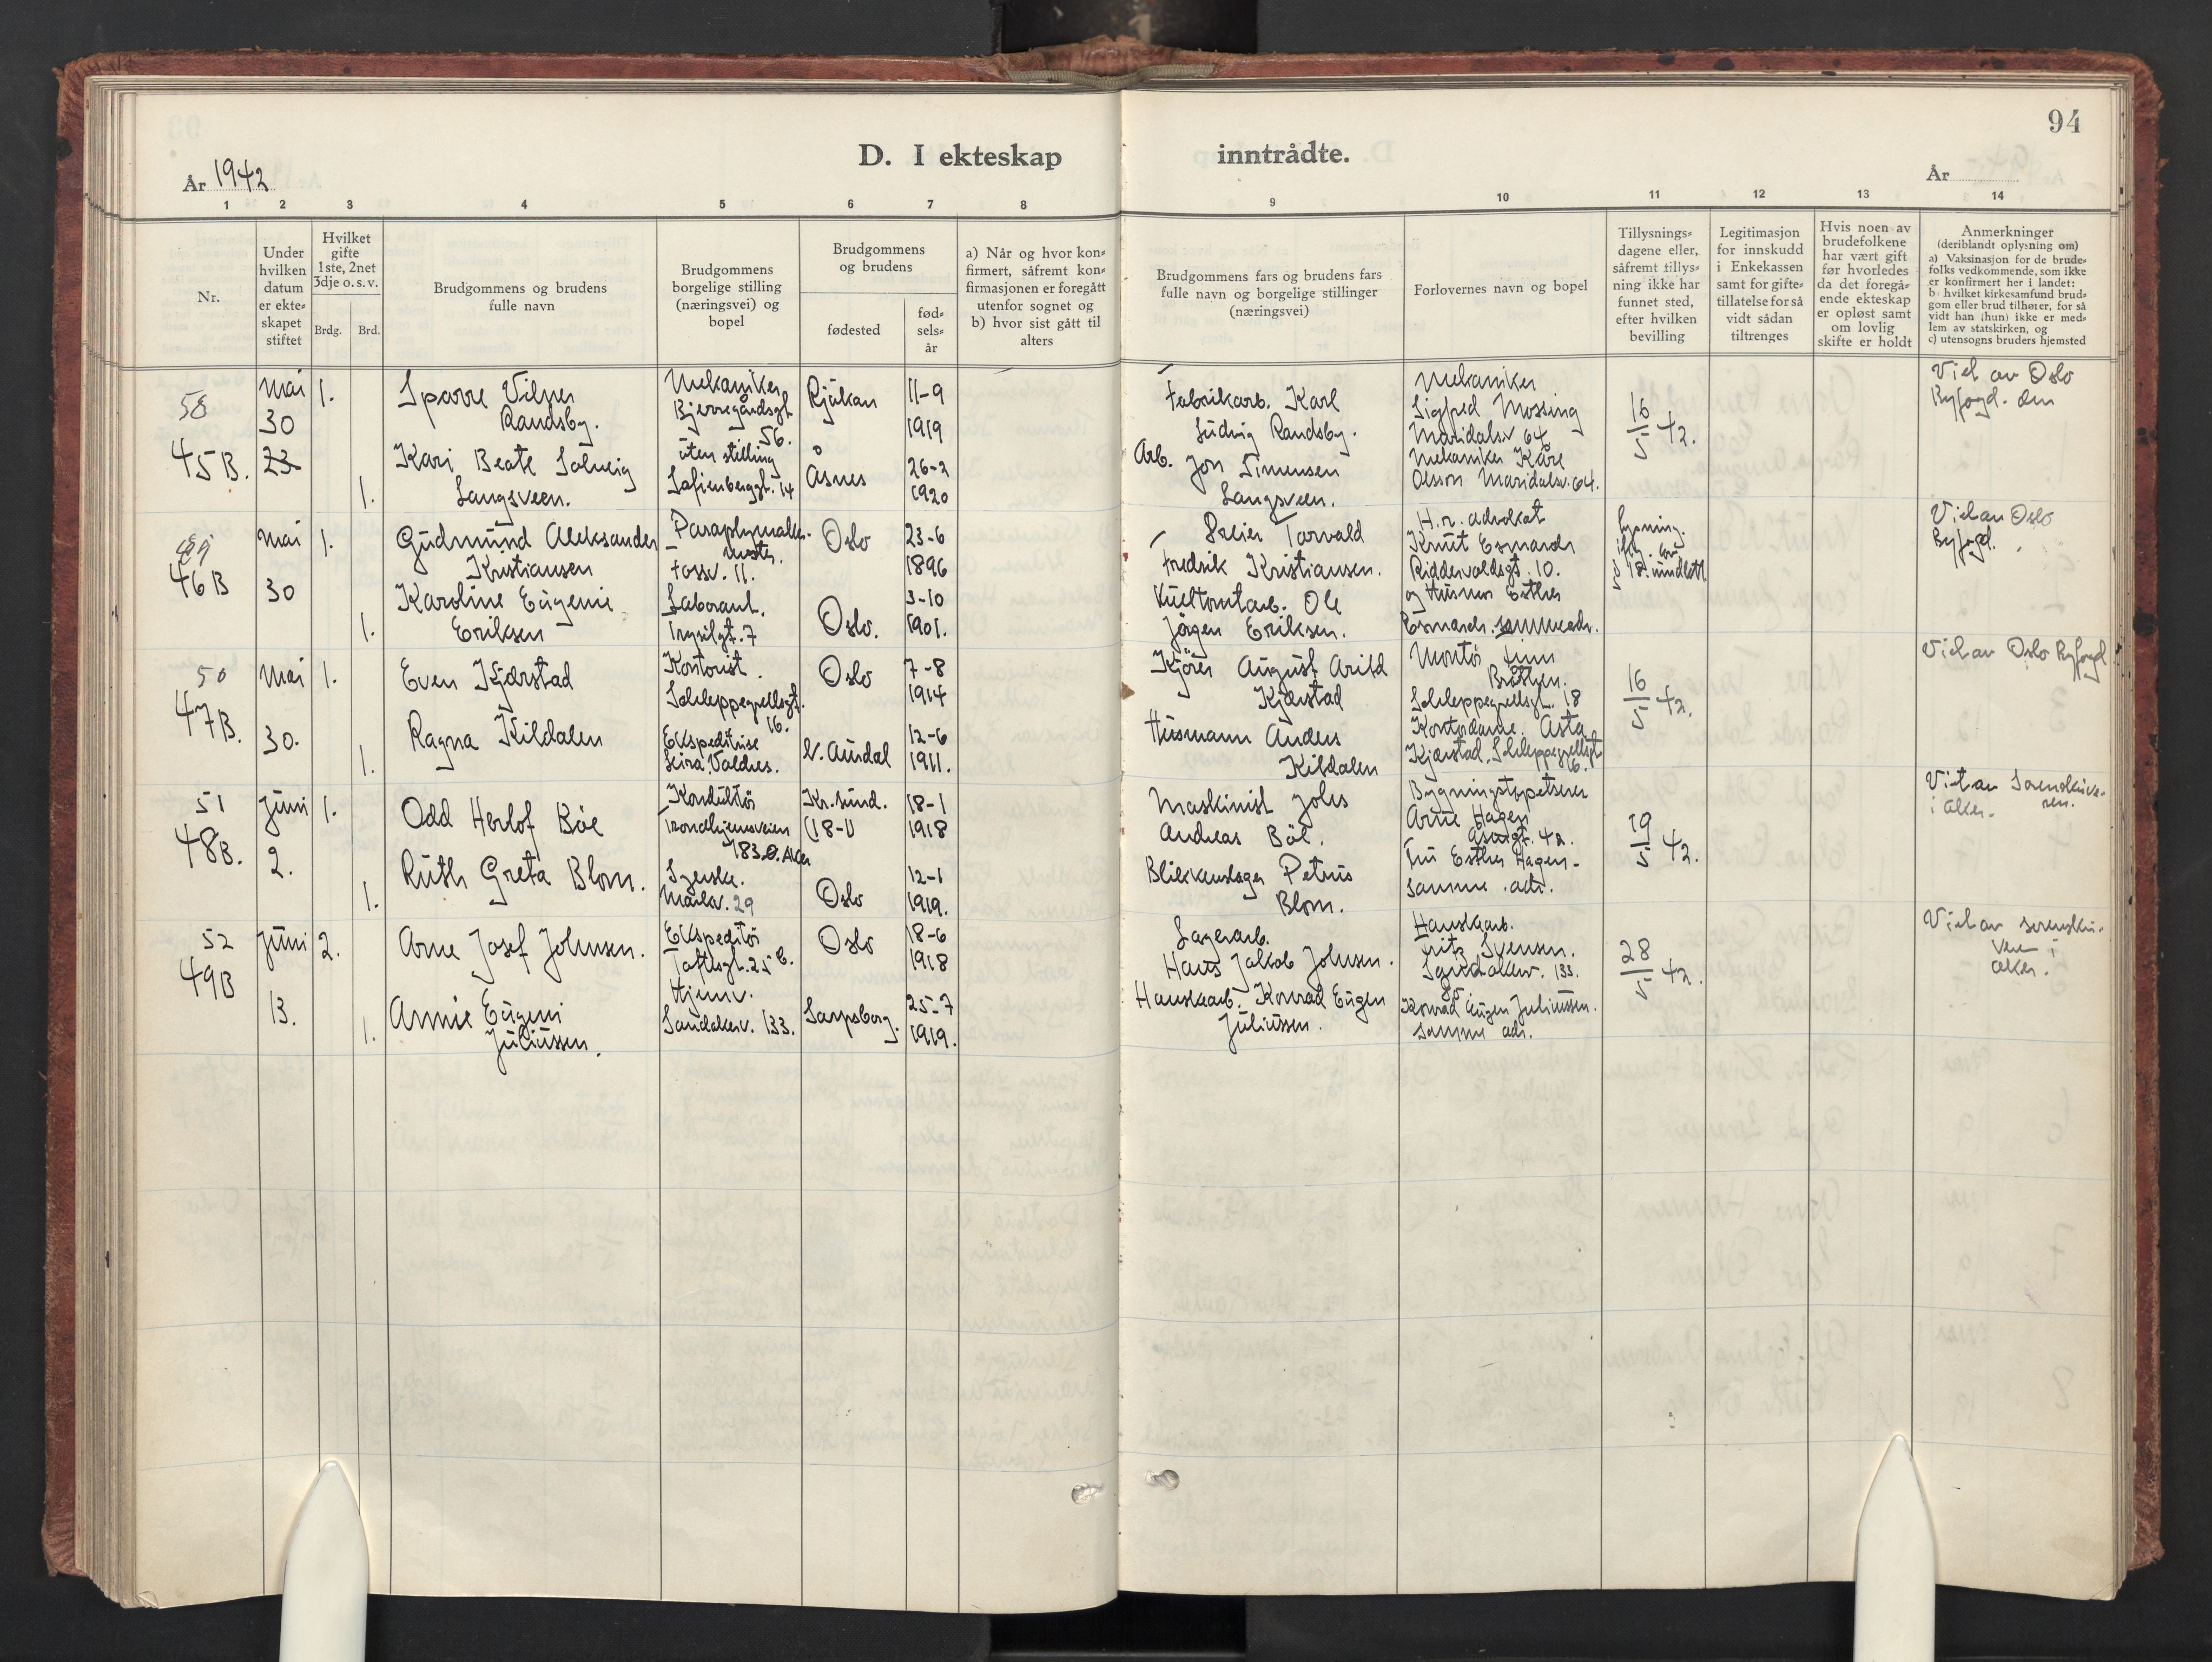 94
D. I ekteskap inntrådte.
År 1942
År
1 2 3 4 5 6 7 8 9 10 11 12 13 14
Nr.
Under
hvilken
datum
er ekte-
skapet
stiftet
Hvilket
gifte
1ste, 2net
3dje o. s. v.
Brdg. Brd.
Brudgommens og brudens
fulle navn
Brudgommens
borgelige stilling
(næringsvei) og
bopel
Brudgommens
og brudens
fødested
fød-
sels-
år
a) Når og hvor kon-
firmert, såfremt kon-
firmasjonen er foregått
utenfor sognet og
b) hvor sist gått til
alters
Brudgommens fars og brudens fars
fulle navn og borgelige stillinger
(næringsvei)
Forlovernes navn og bopel
Tillysnings-
dagene eller,
såfremt tillys-
ning ikke har
funnet sted,
efter hvilken
bevilling
Legitimasjon
for innskudd
i Enkekassen
samt for gifte-
tillatelse for så
vidt sådan
tiltrenges
Hvis noen av
brudefolkene
har vært gift
før hvorledes
da det foregå-
ende ekteskap
er opløst samt
om lovlig
skifte er holdt
Anmerkninger
(deriblandt oplysning om)
a) Vaksinasjon for de brude-
folks vedkommende, som ikke
er konfirmert her i landet:
b) hvilket kirkesamfund brud-
gom eller brud tilhører, for så
vidt han (hun) ikke er med-
lem av statskirken, og
c) utensogns bruders hjemsted
45 B.
Mai
30
23
1.
1.
Sparre Vilner
Randsby.
Kari Beate Solveig
Langsveen.
Mekaniker
Bjerregårdsgt.
56.
uten stilling
Sofienberggt. 14
Rjukan
Åsnes
11-9
1919
26-2
1920
Fabrikarb. Karl
Ludvig Randsby.
Arb. Jon Simensen
Langsveen.
Mekaniker
Sigfred Mossing
Maridalsv. 64
Mekaniker Kåre
Olsson Maridalsv. 64.
16/5 42.
Viel av Oslo
Byfogd. den
49
46 B
Mai
30
1.
1.
Gudmund Aleksander
Kristiansen
Karoline Eugenie
Eriksen
Fossv. 11.
Laborant.
Trysilgt. 7
Oslo
Oslo.
23-6
1896
3-10
1901.
Torvald
Fredrik Kristiansen.
Ole
Jörgen Eriksen.
H.r. advokat
Knut Esmarch
Riddervoldsgt. 10.
og Husmor Esther
Esmarch. samme adr.
lysning
Viel av Oslo
Byfogd.
50
47 B.
Mai
30.
1.
1.
Even Kjærstad
Ragna Kildalen
Kontorist.
Schleppegrellsgt.
16.
Ekspeditrise
Leira, Valdres.
Oslo
V. Aurdal
7-8
1914
12-6
1911.
Kjörer August Arild
Kjærstad
Husmann Anders
Kildalen
Montör
Bråthen.
Schleppegrellsgt. 18
Kontordame. Asta
Kjærstad. Schleppegrellsgt.
16.
16/5 42.
Viel av Oslo Byfogd
51
48 B.
Juni
2.
1.
1.
Odd Herlof Böe
Ruth Greta Blom.
Konduktör
Trondhjemsveien
183. Ö. Aker
Syerske.
Markv. 29
Kr.sund.
Oslo
18-1
1918
12-1
1919.
Maskinist Johs
Andreas Böe.
Blikkenslager Petrus
Blom.
Bygningstapetserer
Arne Hagen
42.
Fru Esther Hagen-
samme adr.
19/5 42.
Viet av Sorenskrive-
ren.
i Aker.
52
49 B
Juni
13.
2.
1.
Arne Josef Johnsen.
Annie Eugeni
Juliussen.
Ekspeditör
Toftesgt. 25 B.
Hjemv.
Sandakerv. 133.
Oslo
Sarpsborg.
18-6
1918
25-7
1919.
Lagerarb.
Hans Jakob Johnsen.
Hanskearb. Konrad Eugen
Juliussen.
Hanskearb.
Fritz Svensen.
Sandakerv. 133.
Konrad Eugen Juliussen.
samme adr.
28/5 42
Viel av sorenskri-
ven i
Aker.